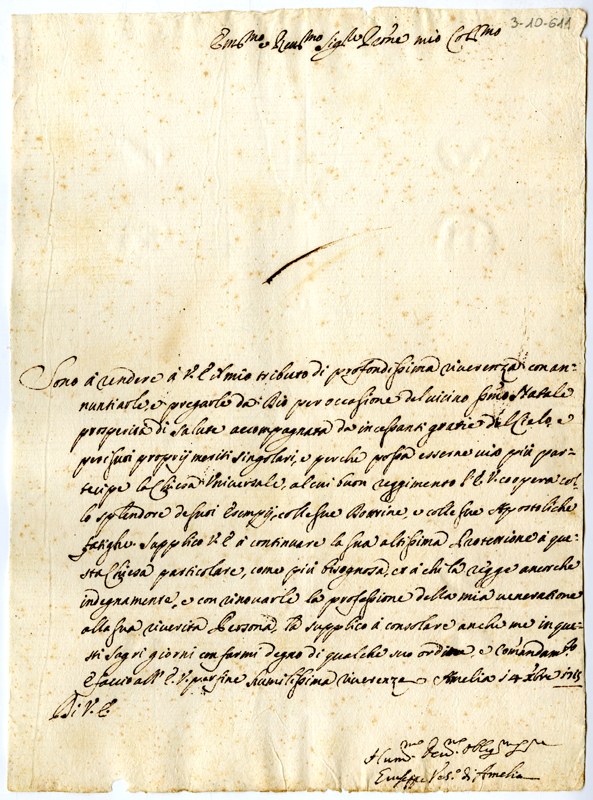 3-10-611
Em.mo e Reu.mo Sig.re Prone mio Coll.mo
Sono à rendere à V. E. il mio tributo di profondissima riuerenza con an=
nuntiarle, e pregarle da Dio per occasione del uicino SS.mo Natale
prosperità di salute accompagnata da incessanti gratie del Cielo, e
per i suoi proprij meriti singolari, e perche possa esserne uie più par=
tecipe la Chiesa Uniuersale, al cui buon reggimento l'E. V. coopera col=
lo splendore de suoi Esempij, colle sue Dottrine, e colle sue Apostoliche
fatighe. Supplico V. E. à continuare la sua altissima Protettione à que=
sta Chiesa particolare, come più bisognosa, et à chi la regge ancorche
indegnamente, e con rinouarle la professione della mia ueneratione
alla sua riuerita Persona, la supplico à consolare anche me in que=
sti sagri giorni con farmi degno di qualche suo ordine, e comandam.to
E faccio all'E. V. per fine humilissima riuerenza Amelia 14 Xbre 1715
Di V. E.
Hum.mo Deu.mo Oblig.mo
Giuseppe Vesc.o di Amelia